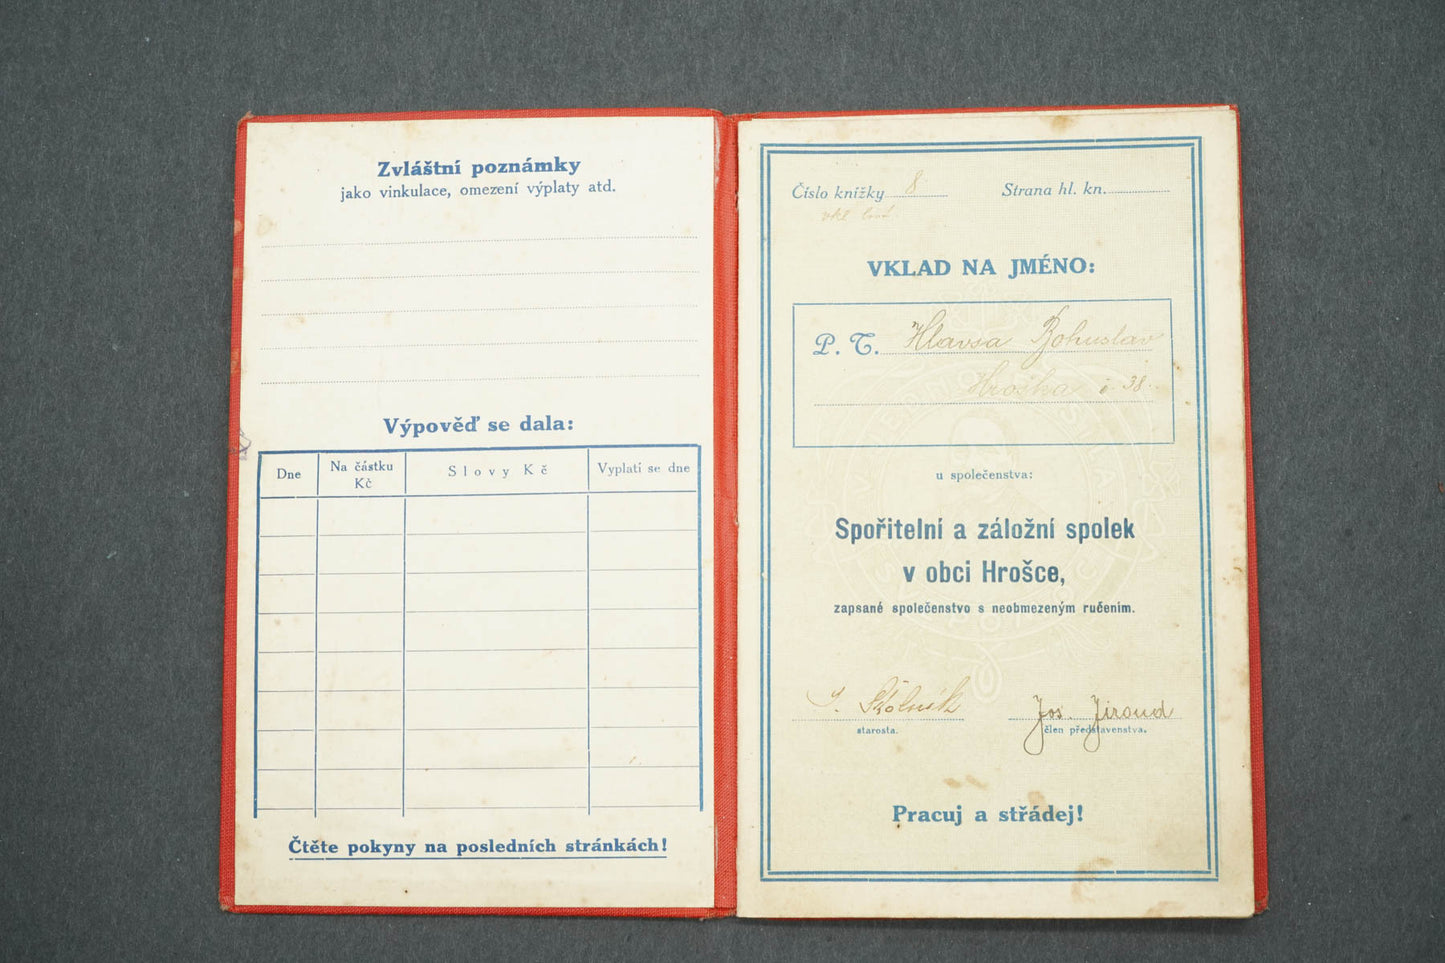 Zvláštní poznámky
jako vinkulace, omezení výplaty atd.
Výpověď se dala:
Dne
Na částku
Kč
Slovy Kč
Vyplatí se dne
Čtěte pokyny na posledních stránkách!
Číslo knížky 8
Strana hl. kn.
VKLAD NA JMÉNO:
P. T. Hlavsa Bohuslav
Hroška č 38.
u společenstva:
Spořitelní a záložní spolek
v obci Hrošce,
zapsané společenstvo s neobmezeným ručením.
Jos. Jiroud
starosta.
člen představenstva.
Pracuj a střádej!